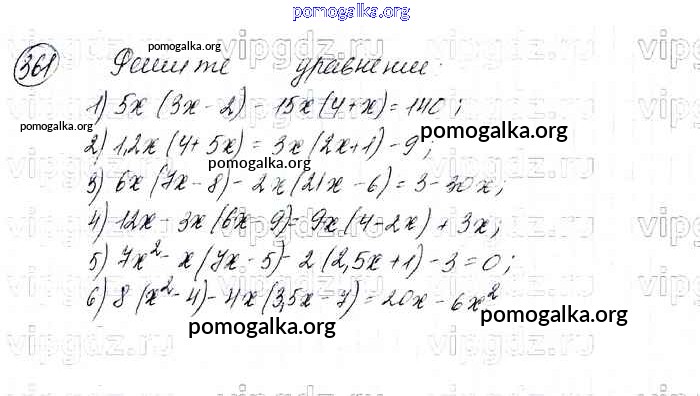 pomogalka.org
361 Решите уравнение:
pomogalka.org
1) 5x(3x - 2) - 15x(4 + x) = 140;
pomogalka.org
2) 1,2x(4 + 5x) = 3x(2x + 1) - 9;
pomogalka.org
pomogalka.org
3) 6x(7x - 8) - 2x(21x - 6) = 3 - 30x;
4) 12x - 3x(6x - 9) = 9x(4 - 2x) + 3x;
5) 7x² - x(7x - 5) - 2(2,5x + 1) - 3 = 0;
6) 8(x² - 4) - 4x(3,5x - 7) = 20x - 6x²
pomogalka.org
pomogalka.org
vipgdz.ru